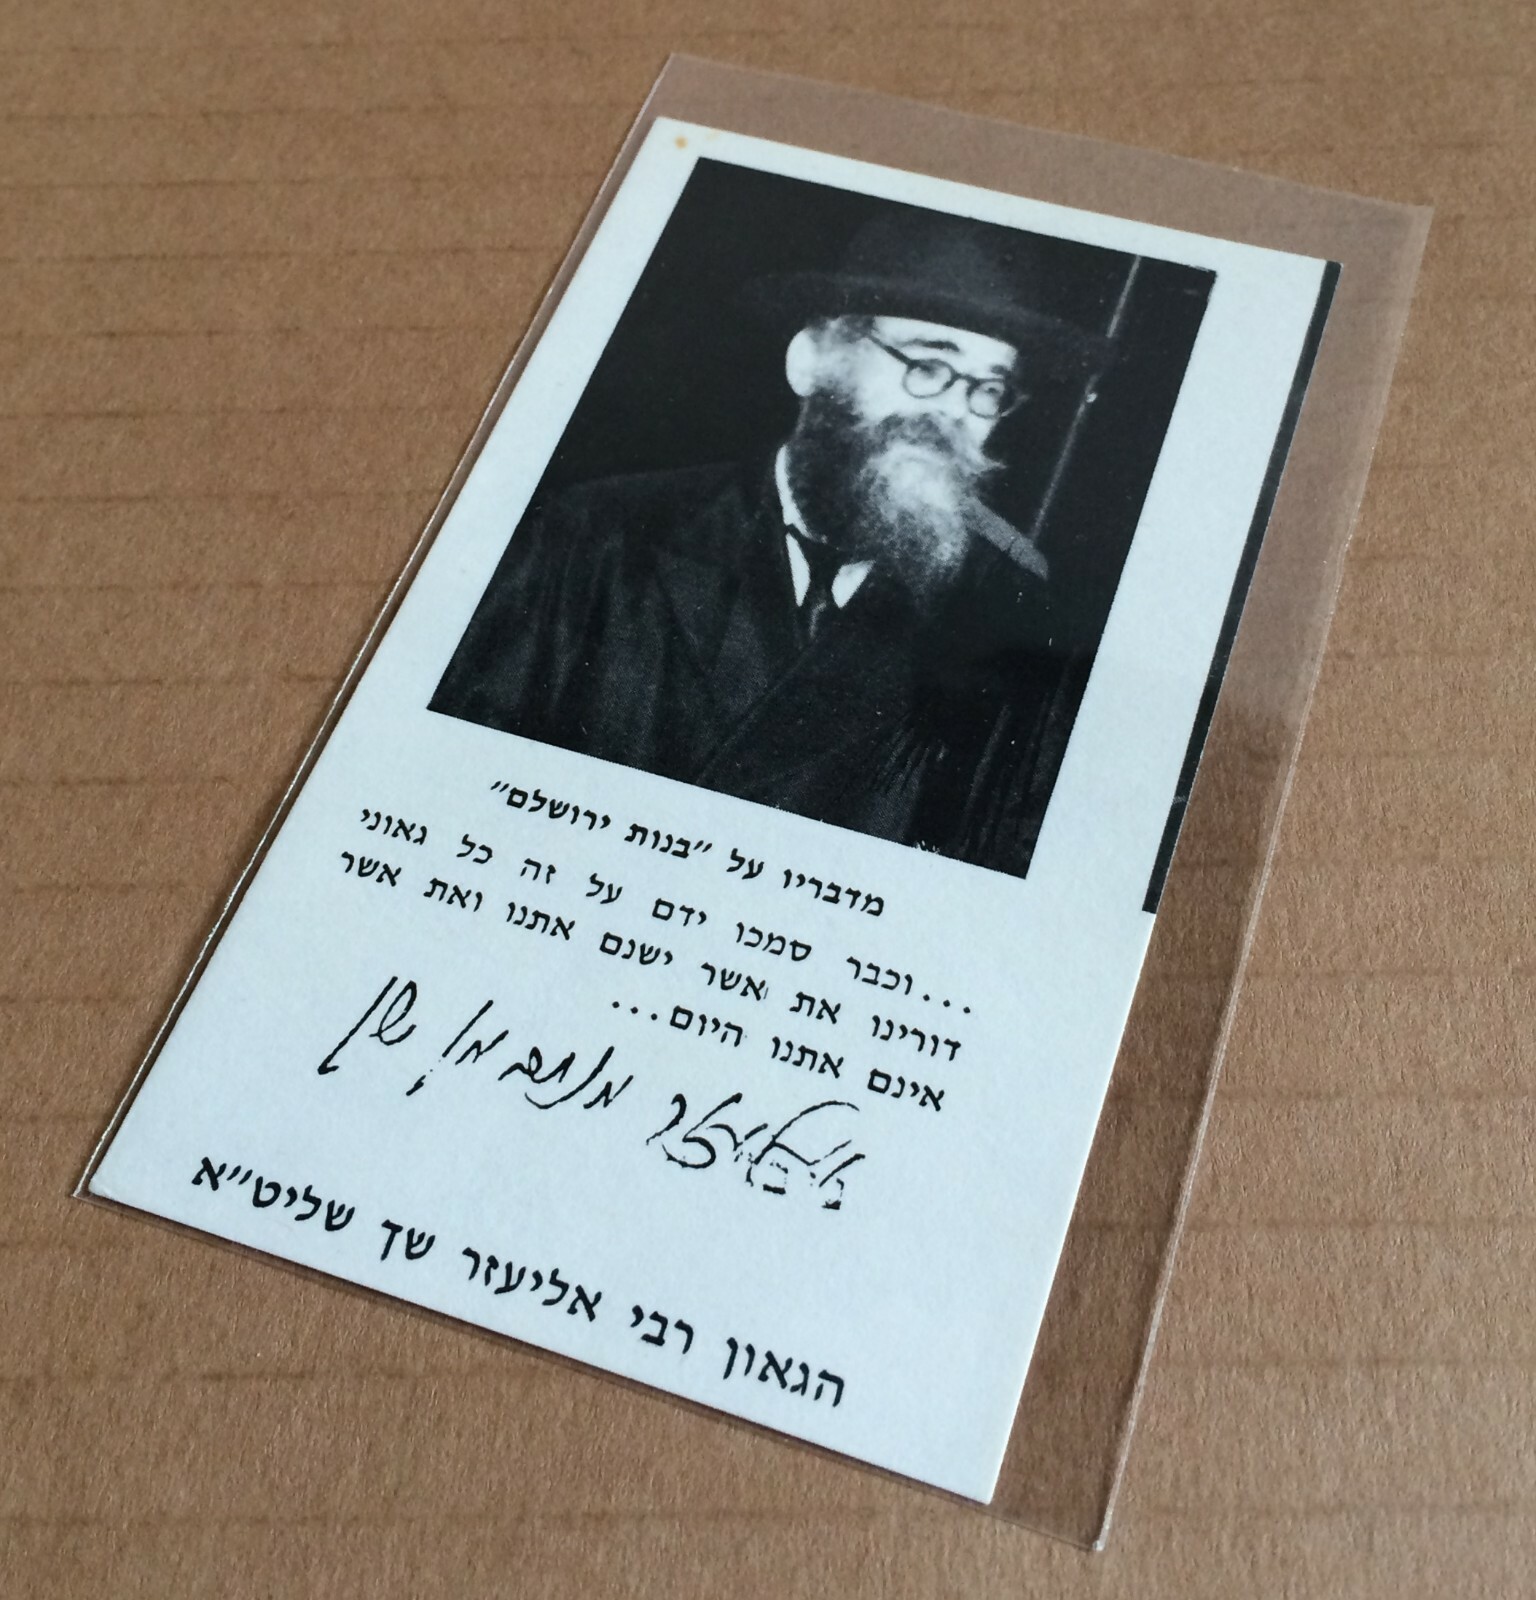 מדבריו על "בנות ירושלם"
...וכבר סמכו ידם על זה כל גאוני
דורינו את אשר ישנם אתנו ואת אשר
אינם אתנו היום...
אליעזר מנחם מן שך
הגאון רבי אליעזר שך שליט"א